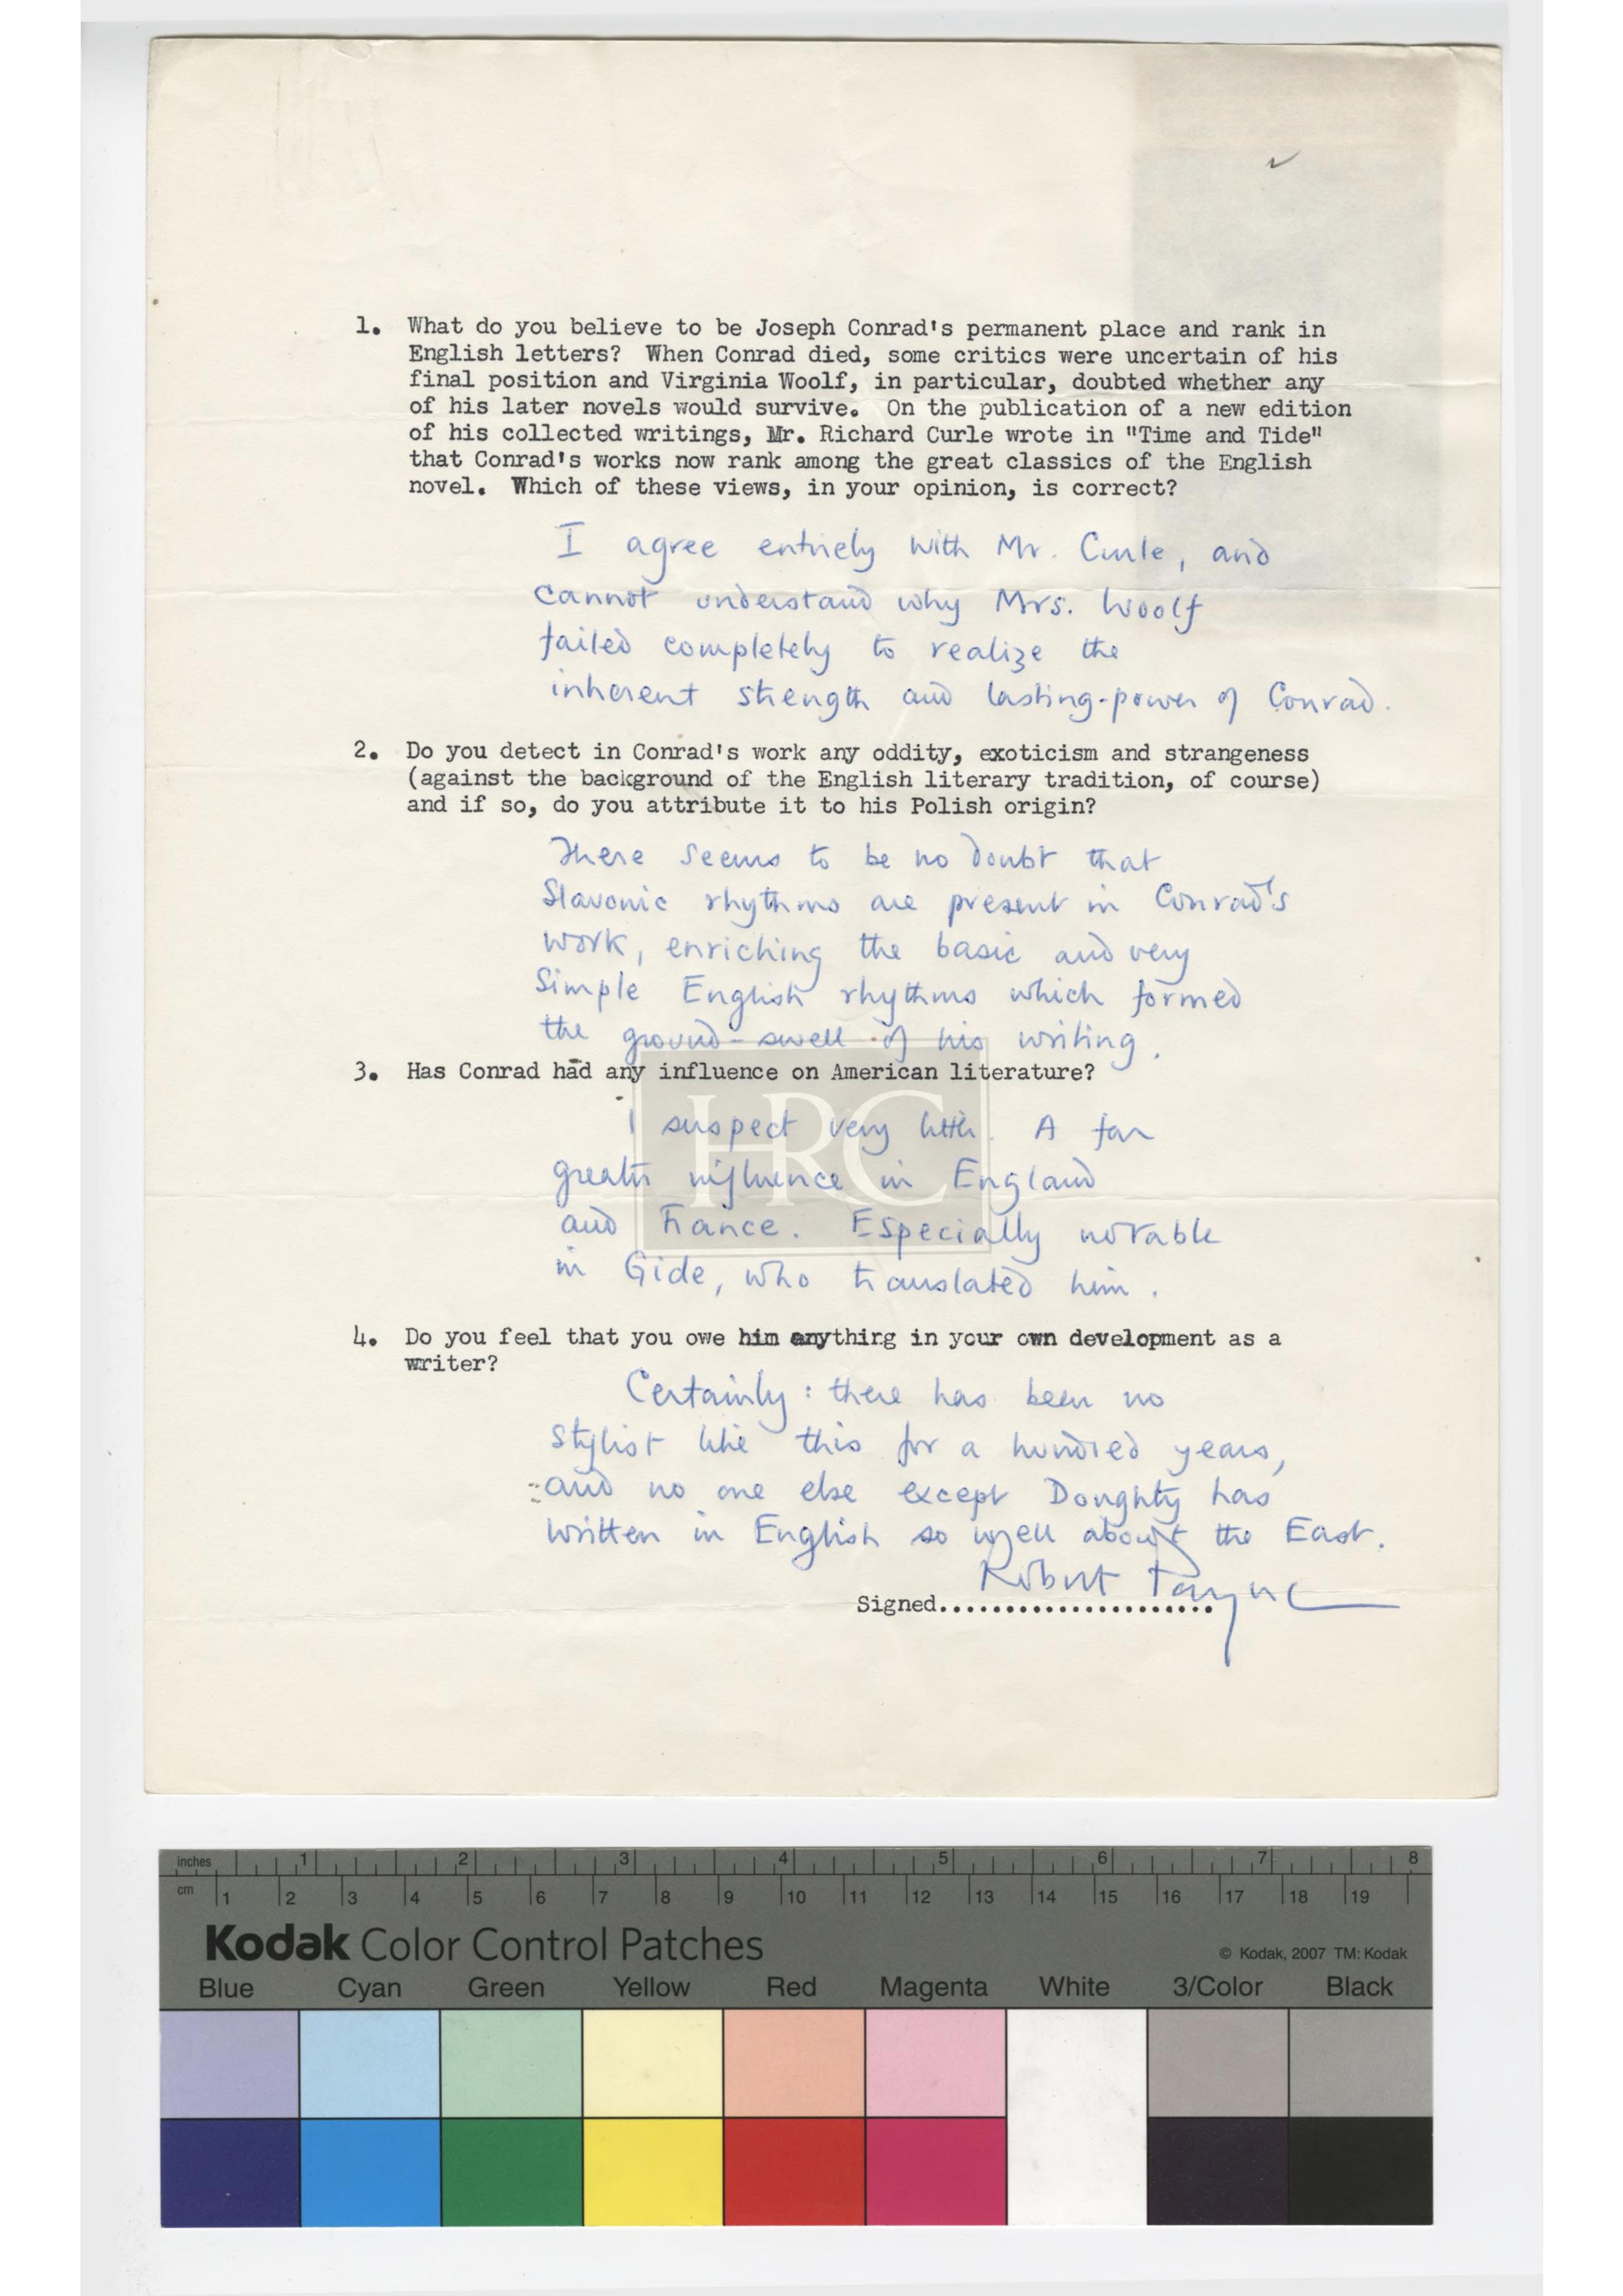 1. What do you believe to be Joseph Conrad's permanent place and rank in
English letters? When Conrad died, some critics were uncertain of his
final position and Virginia Woolf, in particular, doubted whether any
of his later novels would survive. On the publication of a new edition
of his collected writings, Mr. Richard Curle wrote in "Time and Tide"
that Conrad's works now rank among the great classics of the English
novel. Which of these views, in your opinion, is correct?
I agree entirely with Mr. Curle, and
cannot understand why Mrs. Woolf
failed completely to realize the
inherent strength and lasting-power of Conrad.
2. Do you detect in Conrad's work any oddity, exoticism and strangeness
(against the background of the English literary tradition, of course)
and if so, do you attribute it to his Polish origin?
There seems to be no doubt that
Slavonic rhythms are present in Conrad's
work, enriching the basic and very
simple English rhythms which formed
the ground-swell of his writing.
3. Has Conrad had any influence on American literature?
I suspect very little. A far
greater influence in England
and France. Especially notable
in Gide, who translated him.
4. Do you feel that you owe him anything in your own development as a
writer?
Certainly: there has been no
stylist like this for a hundred years,
and no one else except Doughty has
written in English so well about the East.
Robert Payne
Signed.....................
HRC
inches 1 2 3 4 5 6 7 8
cm 1 2 3 4 5 6 7 8 9 10 11 12 13 14 15 16 17 18 19
Kodak Color Control Patches
© Kodak, 2007 TM: Kodak
Blue Cyan Green Yellow Red Magenta White 3/Color Black